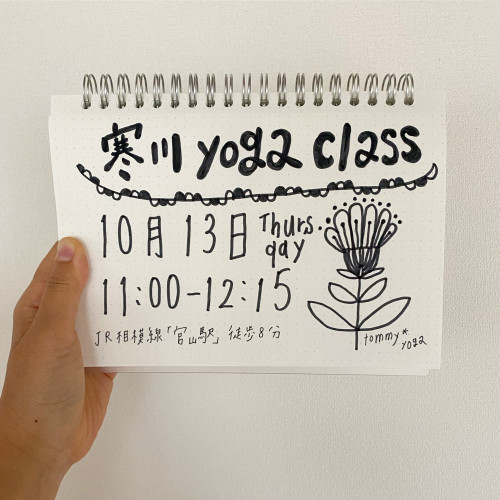 寒川 yoga class
10月 13日 Thursday
11:00-12:15
JR相模線「宮山駅」徒歩8分
tommy*
yoga